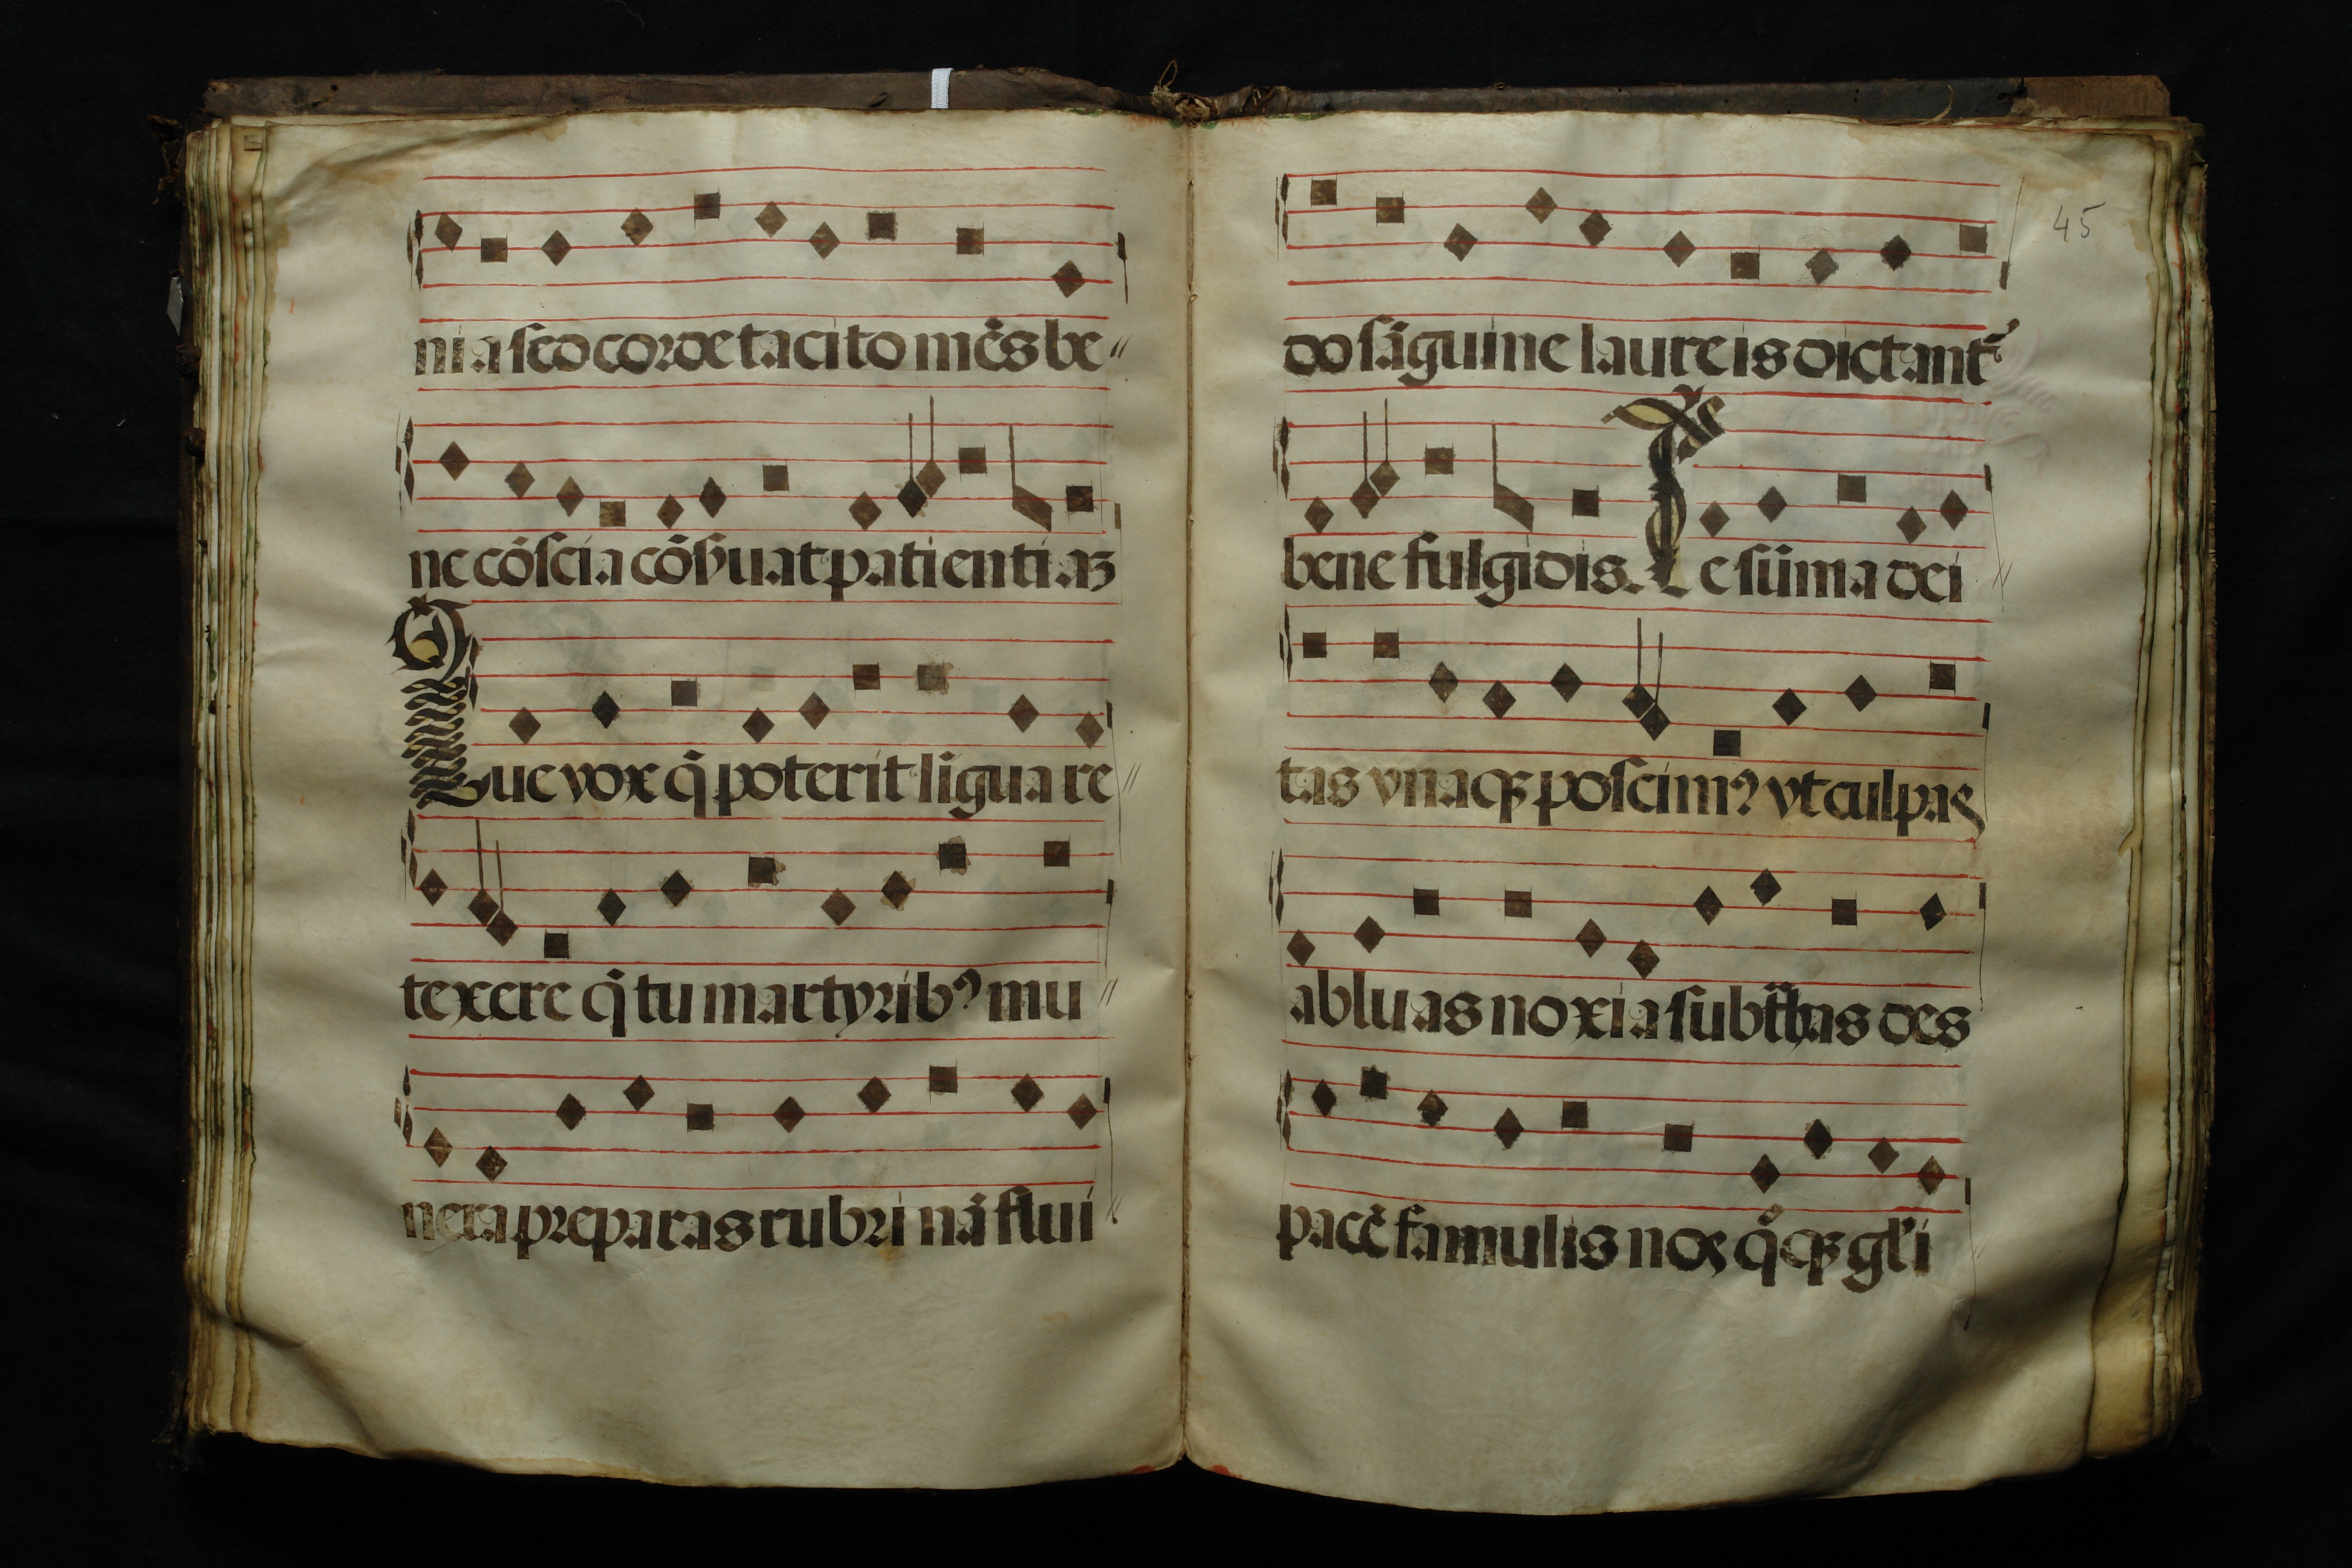 ni a sed corde tacito mēs be
ne cōscia cōſ̄uat patientiaꝫ
Que vox q̄ poterit līgua re
texere q̄ tu martyribꝰ mu
nera preparas rubri nā flui
45
do sāguine laureis dictantᷣ
bene fulgidis. Te sūma dei
tas vnaqꝫ poscimꝰ vt culpas
abluas noxia subt̄has des
pacē famulis nos q̊qꝫ gl̄i